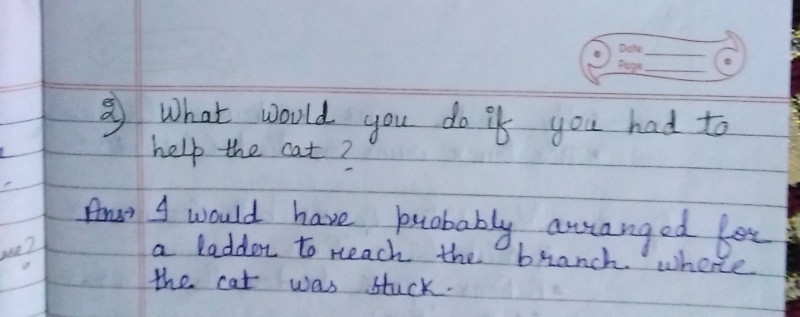 Date
Page
2) What would you do if you had to
help the cat ?
Ans→ I would have probably arranged for
a ladder to reach the branch where
the cat was stuck.